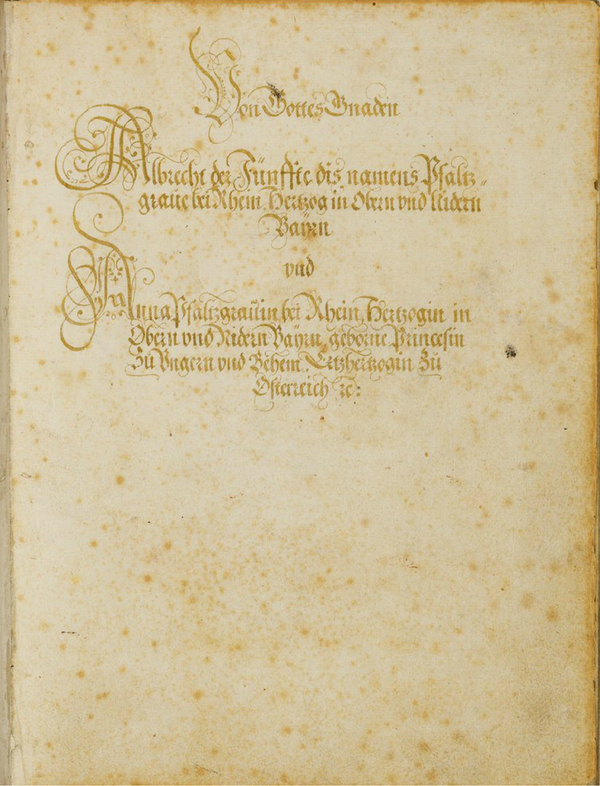 Von Gottes Gnaden
Albrecht der Fünffte dis namens Pfaltz=
graue bei Rhein, Hertzog in Obern vnd Nidern
Bayrn
vnd
Anna Pfaltzgrauin bei Rhein, Hertzogin in
Obern vnd Nidern Bayrn, geborne Princesin
Zu Vngern vnd Behem, Ertzhertzogin Zu
Österreich ꝛc: